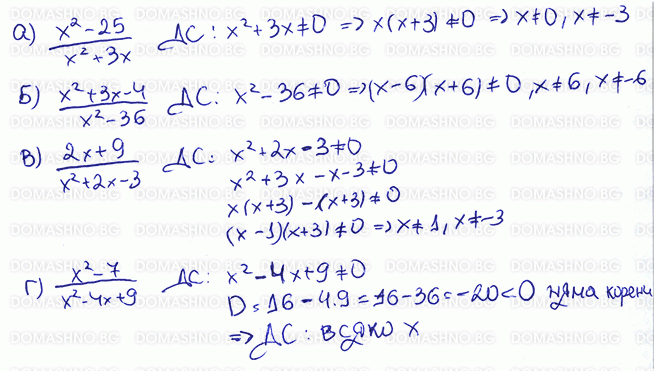 а) (x²-25)/(x²+3x) ДС: x²+3x≠0 => x(x+3)≠0 => x≠0, x≠-3
б) (x²+3x-4)/(x²-36) ДС: x²-36≠0 => (x-6)(x+6)≠0, x≠6, x≠-6
в) (2x+9)/(x²+2x-3) ДС: x²+2x-3≠0
x²+3x-x-3≠0
x(x+3)-(x+3)≠0
(x-1)(x+3)≠0 => x≠1, x≠-3
г) (x²-7)/(x²-4x+9) ДС: x²-4x+9≠0
D=16-4.9=16-36=-20<0 няма корени
=> ДС: всяко x